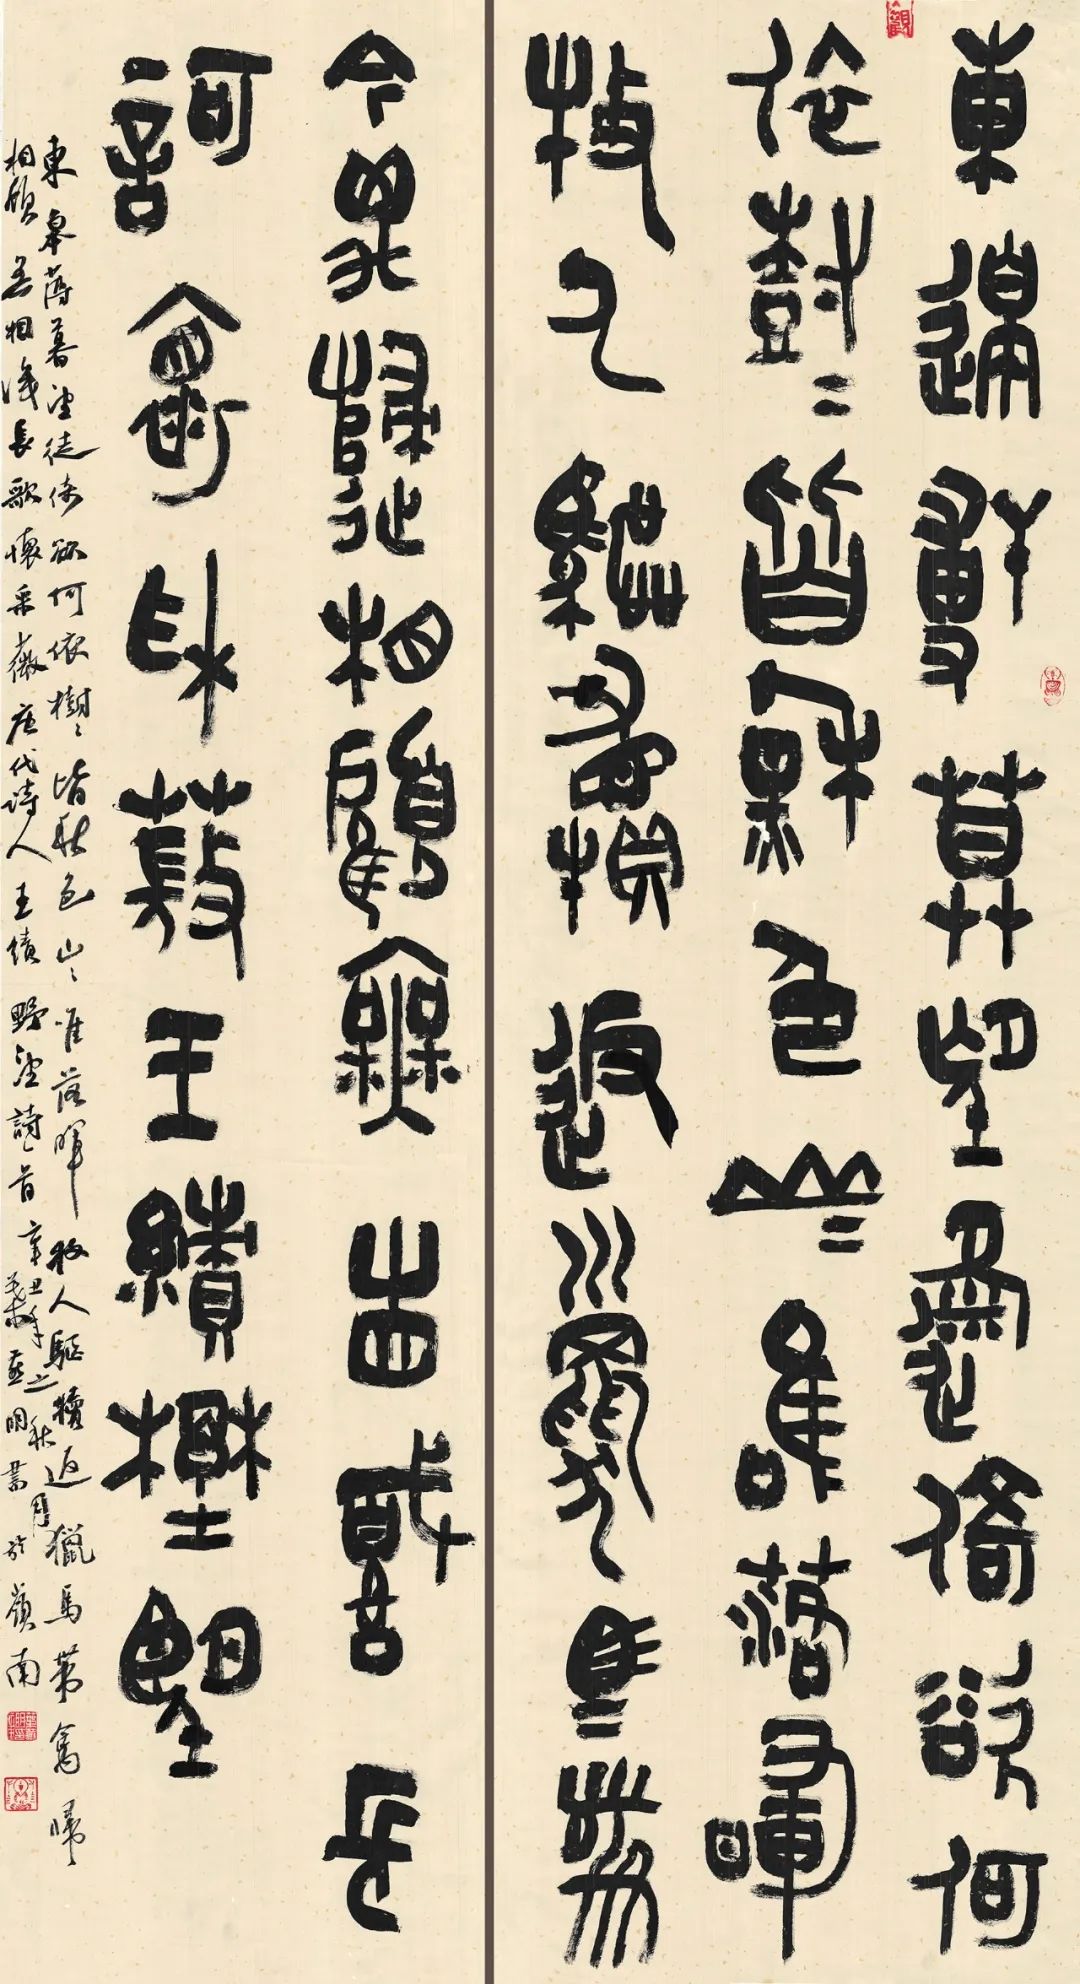 東皋薄暮望徙倚欲何
依樹〻皆秋色山〻唯落暉
牧人驅犢返獵馬帶
禽歸相顧無相識長
歌懷采薇王績野望
東皋薄暮望徙倚欲何依樹〻皆秋色山〻唯落暉牧人驅犢返獵馬帶禽歸
相顧無相識長歌懷采薇唐代詩人王績野望詩一首辛丑年之秋月
孟明書於嶺南